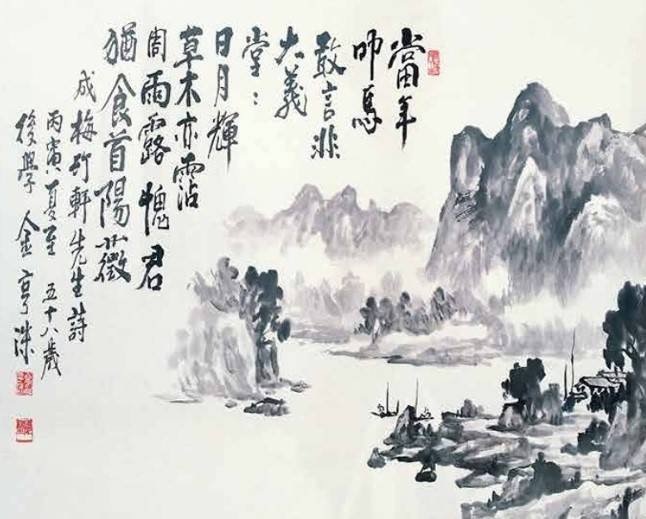 當年
叩馬
敢言非
大義
堂〻
日月輝
草木亦霑
周雨露愧君
猶食首陽薇
成梅竹軒先生詩
丙寅夏至 五十八歲
後學 金亨洙